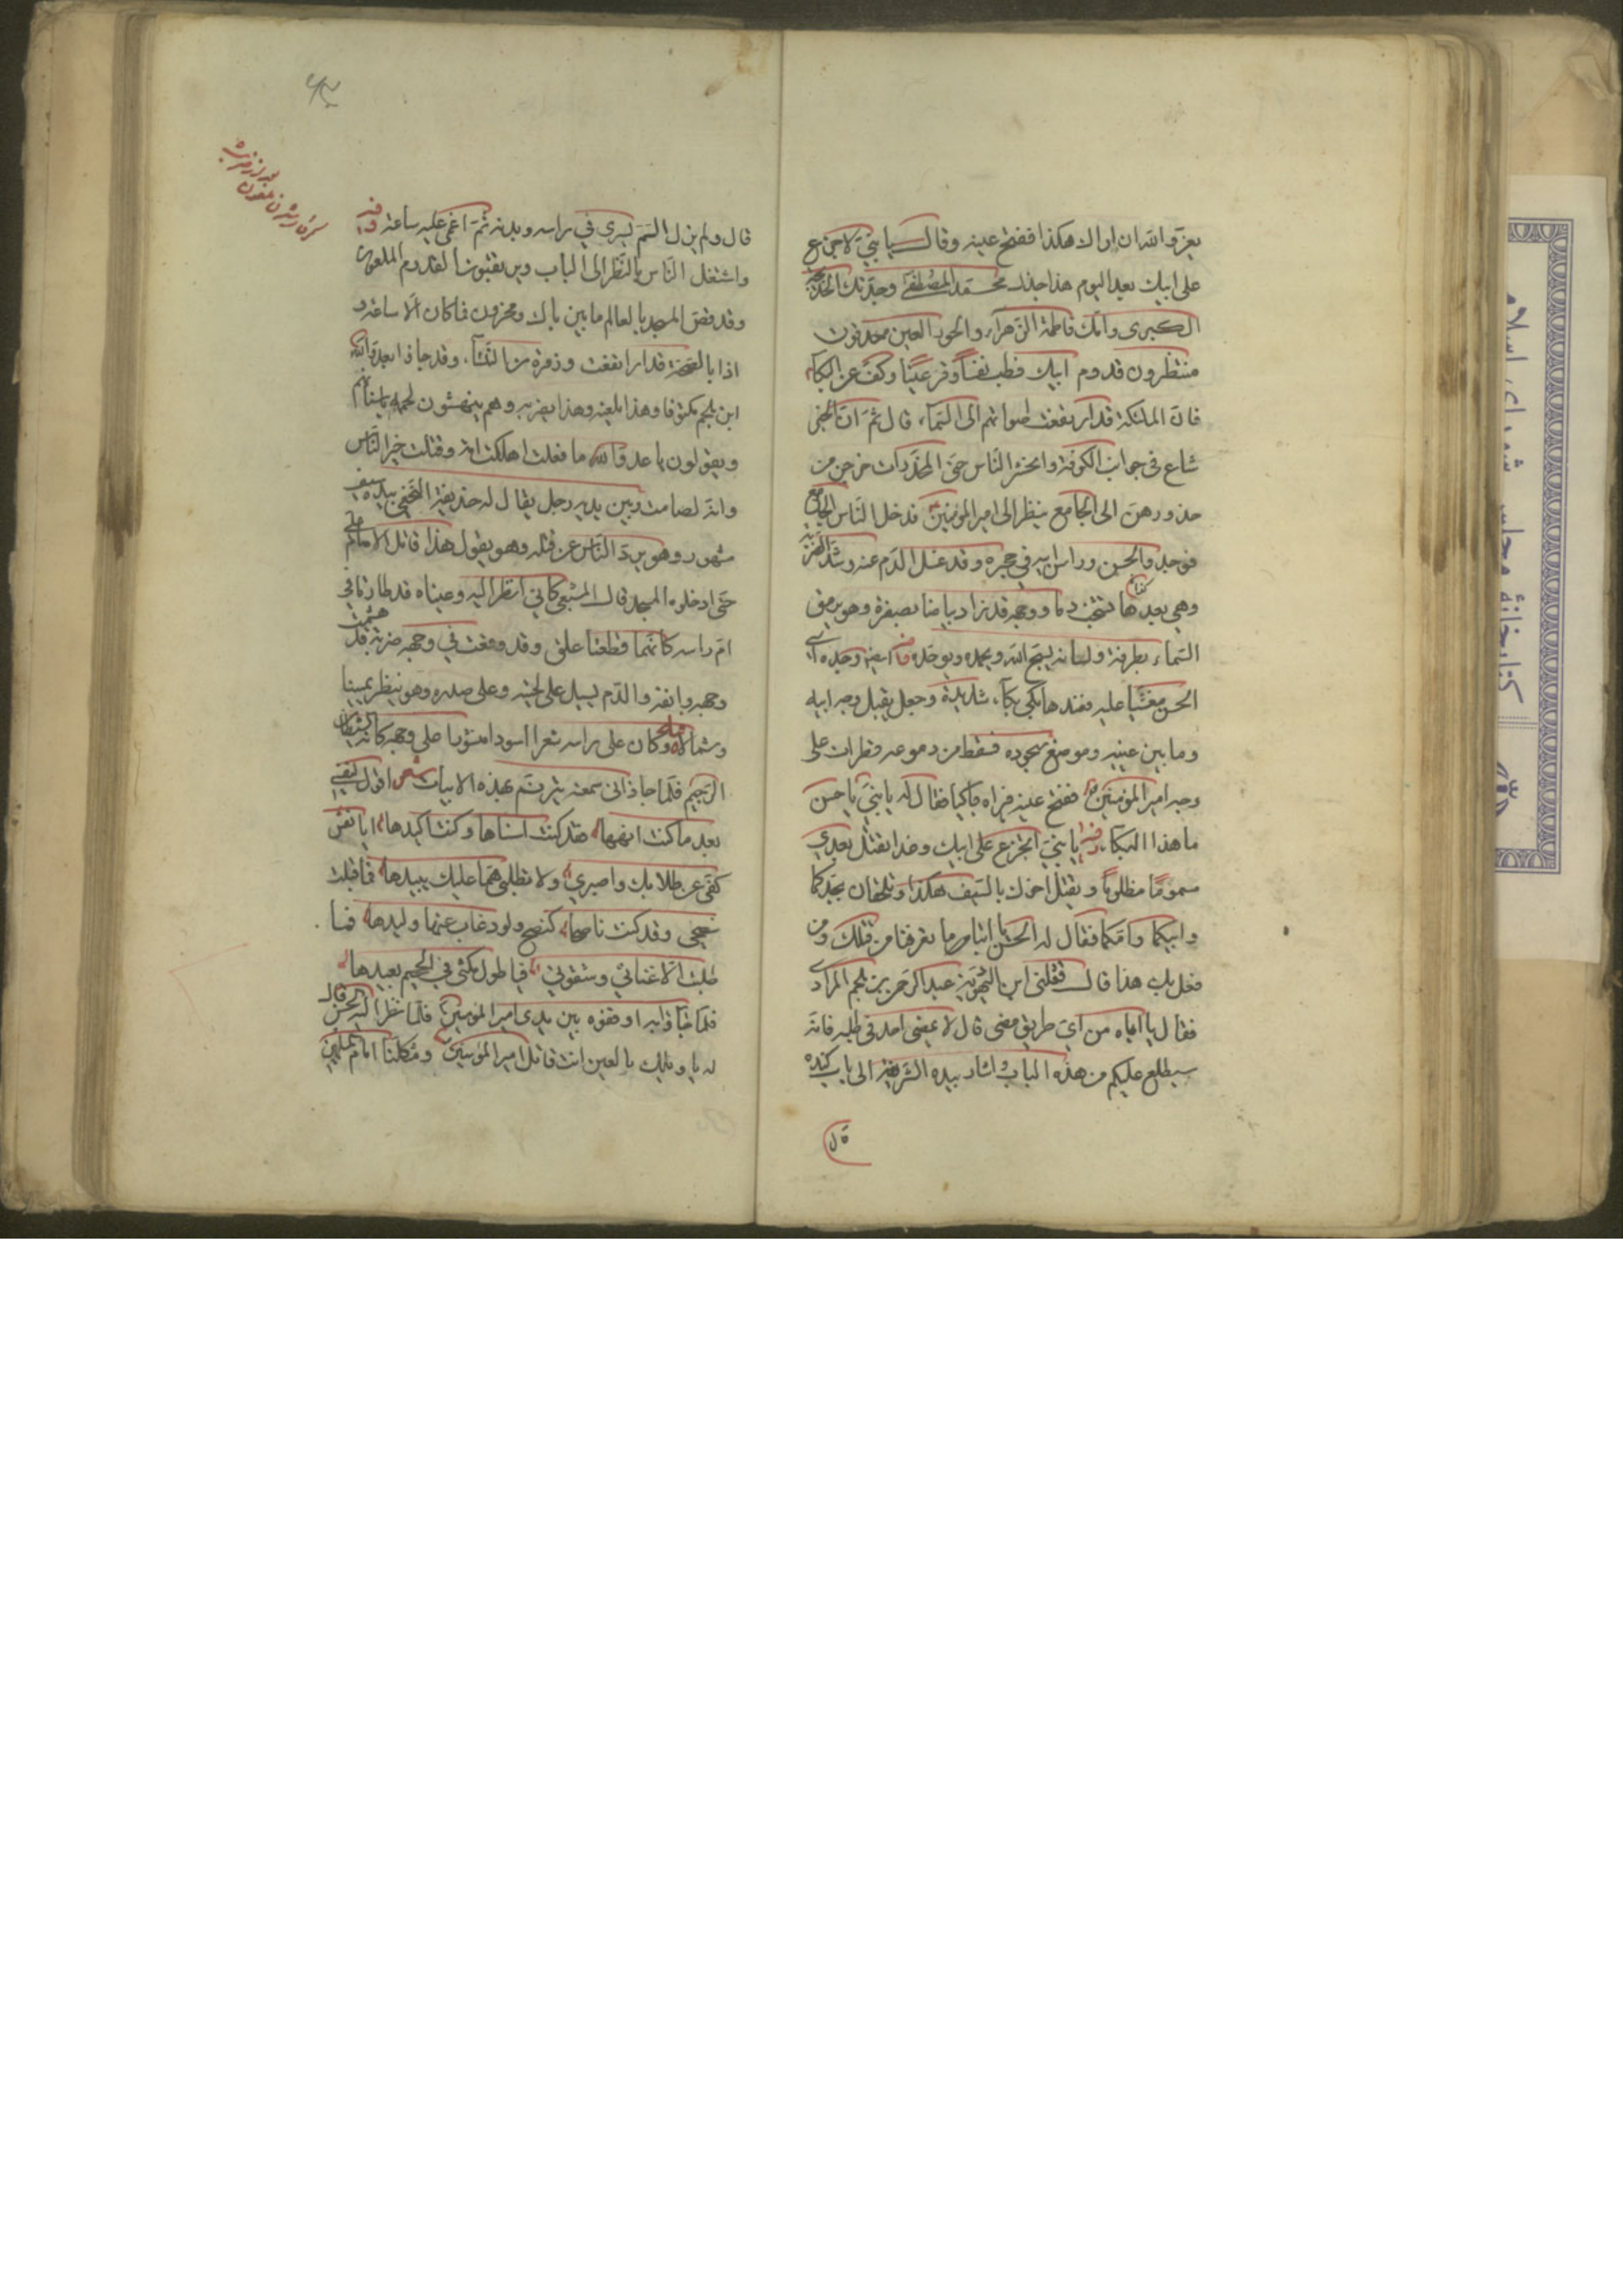 يعزّ والله ان اراك هكذا ففتح عينه وقال يا بنيّ لا جزع
على ابيك بعد اليوم هذا جدّك محمّد المصطفى وجدّتك خديجة
الكبرى وامّك فاطمة الزهراء والحور العين محدقون
منتظرون قدوم ابيك فطب نفسًا وقرّ عينًا وكفّ عن البكاء
فان الملئكة قد ارتفعت اصواتهم الى السّماء، قال ثمّ انّ الخبر
شاع في جوانب الكوفة وانحشر النّاس حتّى المخدّرات خرجن من
خدورهنّ الى الجامع ينظر الى امير المؤمنين فدخل النّاس الجامع
فوجدوا الحسن وراس ابيه في حجره وقد غسل الدّم عنه وشدّ الضربة
وهي بعدها تشخب دما ووجهه قد زاد بياضا بصفرة وهو يرمق
السّماء بطرفه ولسانه يسبّح الله ويحمده ويوحّده
الحسن مغشيّا عليه فعندها بكى بكاء شديدة وجعل يقبل وجه ابيه
وما بين عينيه وموضع سجوده فسقط من دموعه قطرات على
وجه امير المؤمنين ففتح عينه فراه باكيا فقال له يا بنيّ يا حسن
ما هذا البكاء يا بنيّ اتجزع على ابيك وغدا تقتل بعدي
مسمومًا مظلومًا ويقتل اخوك بالسّيف هكذا وتلحقان بجدّكما
وابيكما وامّكما فقال له الحسن يا ابتاه ما تعرفنا من قتلك ومن
فعل بك هذا قال قتلني ابن اليهوديّة عبد الرّحمن بن ملجم المرادي
فقال يا اباه من ايّ طريق مضى قال لا يمضي احد في طلبه فانّه
سيطلع عليكم من هذه الباب واشار بيده الشّريفة الى باب كنده
قال
قال ولم يزل السّمّ يسري في راسه وبدنه ثمّ اغمي عليه ساعة
واشتغل النّاس بالنّظر الى الباب ويرتقبون لقدوم الملعون
وقد غصّ المسجد بالعالم ما بين باك ومحزون فما كان الّا ساعة و
اذا بالصّيحة قد ارتفعت وزمرة من النّاس، وقد جاؤا بعدوّ الله
ابن ملجم مكتوفا وهذا يلعنه وهذا يضربه وهم ينهشون لحمه باسنانهم
ويقولون يا عدوّ الله ما فعلت اهلكت امّة وقتلت خير النّاس
وانّه لصامت وبين يديه رجل يقال له حذيفة النّخعي بيده سيف
مشهور وهو يردّ النّاس عن قتله وهو يقول هذا قاتل الامام علي
حتّى ادخلوه المسجد قال الشّعبي كانّي انظر اليه وعيناه قد طارتا في
امّ راسه كانّهما قطعتا علق وقد وقعت في وجهه ضربة قد هشمت
وجهه وانفه والدّم يسيل على لحيته وعلى صدره وهو ينظر يمينا
وشمالا وكان على راسه شعرا اسودا منشورا على وجهه كانّه الشيطان
الرّجيم فلمّا جاؤا به سمعته يترنّم بهذه الابيات شعر اقول لنفسي
بعد ما كنت انهاها فقد كنت اسناها وكنت اكيدها ايا نفس
كفّي عن طلابك واصبري ولا تطلبي همّا عليك يبيدها فما قبلت
نصحي وقد كنت ناصحا كنصح ولود غاب عنها وليدها فما
طلبت الّا عنائي وشقوتي فيا طول مكثي في الجحيم بعيدها
فلمّا جاؤا به اوقفوه بين يدي امير المؤمنين فلمّا نظر اليه الحسن قال
له يا ويلك يا لعين انت قاتل امير المؤمنين ومثكلنا امام المسلمين